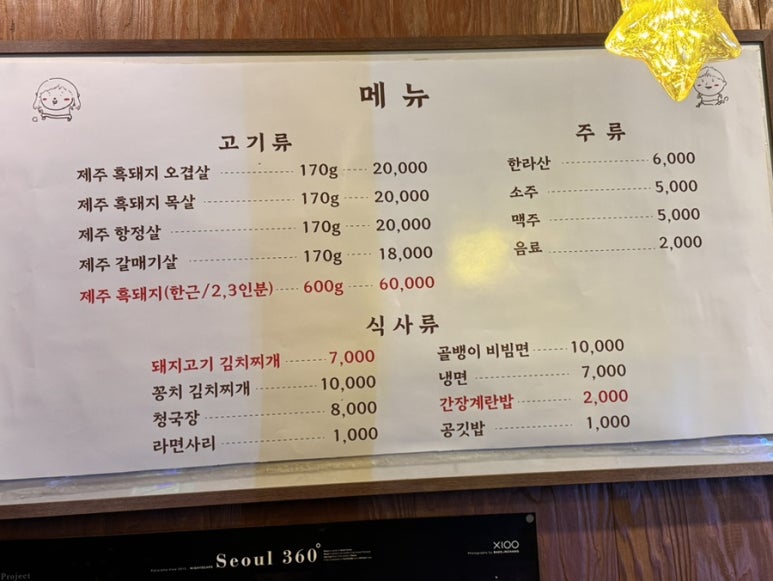 메뉴
고기류
제주 흑돼지 오겹살 170g 20,000
제주 흑돼지 목살 170g 20,000
제주 항정살 170g 20,000
제주 갈매기살 170g 18,000
제주 흑돼지(한근/2,3인분) 600g 60,000
주류
한라산 6,000
소주 5,000
맥주 5,000
음료 2,000
식사류
돼지고기 김치찌개 7,000
꽁치 김치찌개 10,000
청국장 8,000
라면사리 1,000
골뱅이 비빔면 10,000
냉면 7,000
간장계란밥 2,000
공깃밥 1,000
Seoul 360°
X100
Project